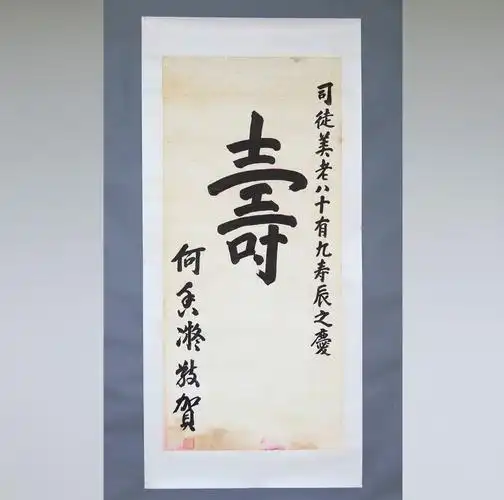 司徒美老八十有九寿辰之慶
壽
何香凝敬賀